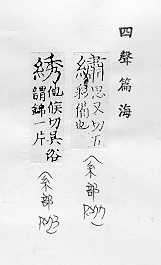 四聲篇海
繡思又切五
彩備也
(糸部
綉他候切吳俗
謂綿一片
(糸部